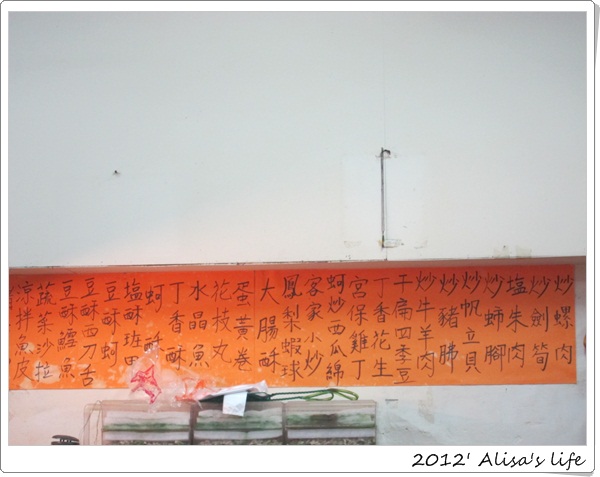 炒螺肉
炒劍筍
塩朱肉
炒蟳腳
炒帆立貝
炒豬腸
炒牛羊肉
干扁四季豆
丁香花生
宮保雞丁
蚵炒西瓜綿
客家小炒
鳳梨蝦球
大腸酥
蛋黃卷
花枝丸
水晶魚
丁香酥
蚵酥
塩酥斑
豆酥蚵
豆酥四刀舌
豆酥鱈魚
蔬菜沙拉
涼拌魚皮
2012' Alisa's life